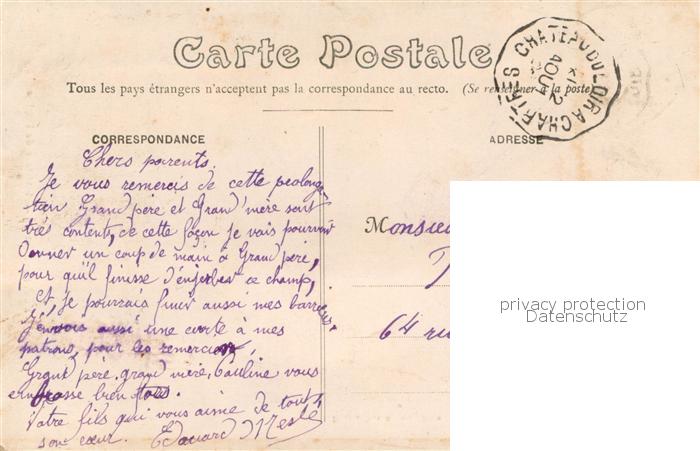 Carte Postale
Tous les pays étrangers n'acceptent pas la correspondance au recto. (Se renseigner à la poste)
CHATEAUDULOIR A CHARTRES
2
AOUT
CORRESPONDANCE
ADRESSE
Chers parents.
Je vous remercis de cette prolonga-
tion Grand père et Grand'mère sont
très content, de cette façon je vais pouvoir
Donner un coup de main à Grand père,
pour qu'il finisse d'enjerber ce champ,
et, je pourrais finir aussi mes barreaux.
J'envois aussi une carte à mes
patrons, pour les remercier,
Grand père, grand mère, Pauline vous
embrasse bien tous.
Votre fils qui vous aime de tout
son cœur. Edouard Mesle
Monsieur
64 ru
privacy protection
Datenschutz